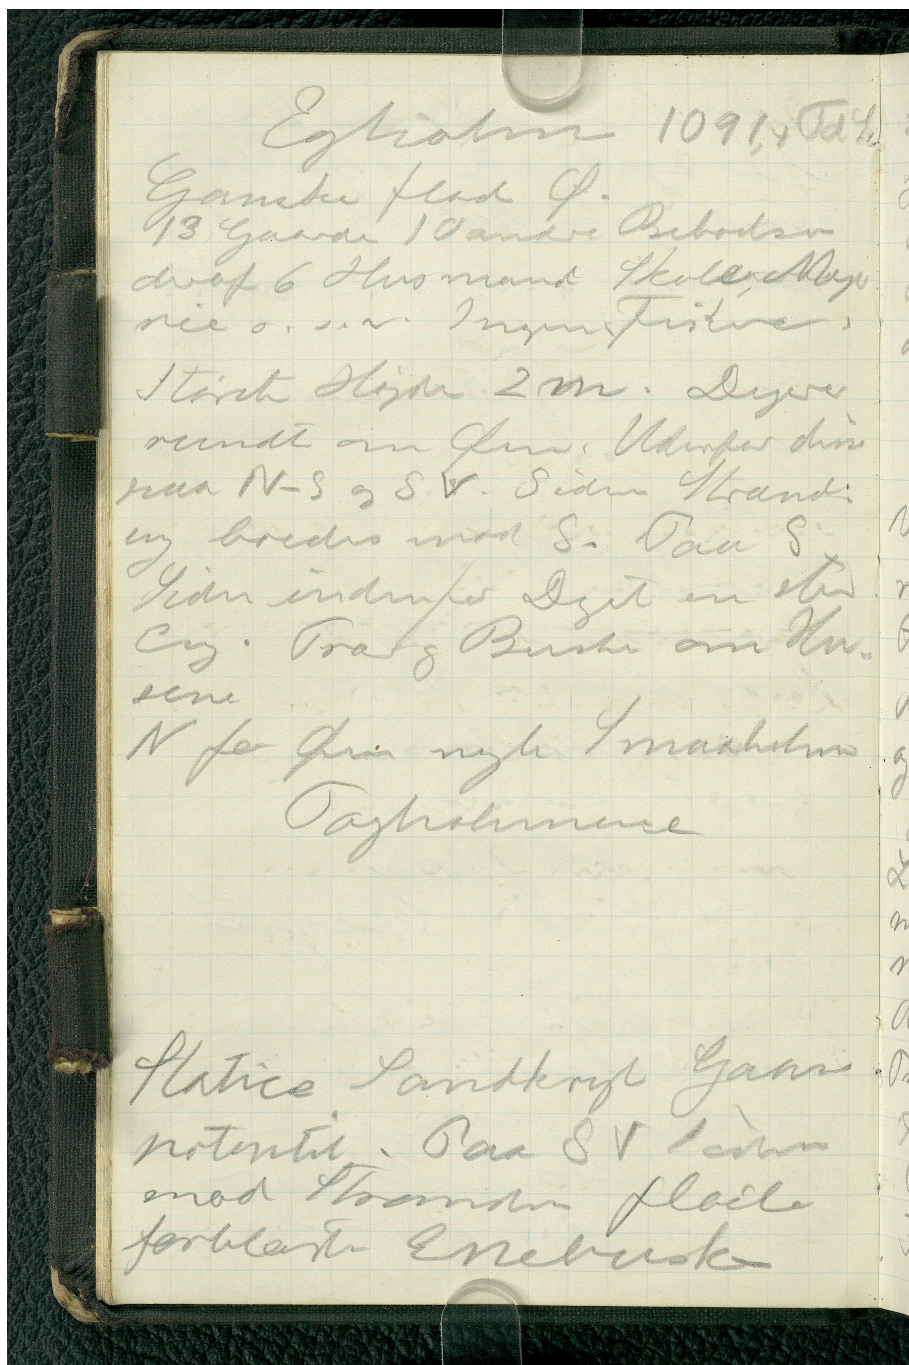 Egholm 1091,4 Td L
Ganske flad Ø.
13 Gaarde 10 andre Beboelser
deraf 6 Husmænd Skole, Meje
rie o.s.v. Ingen Fiskere.
Største Højde 2 m. Diger
rundt om Øen. Udenfor disse
paa N-S og SV. Siden Strand-
eng bredes mod S. Paa S
Siden indenfor Diget en stor
Eng. Træ og Buske om Hu-
sene
N for Øen nogle Smaaholme
Tagholmene
Statice Sandkryb Gaase
potentil. Paa SV Siden
mod Stranden flade
forblæste Enebuske